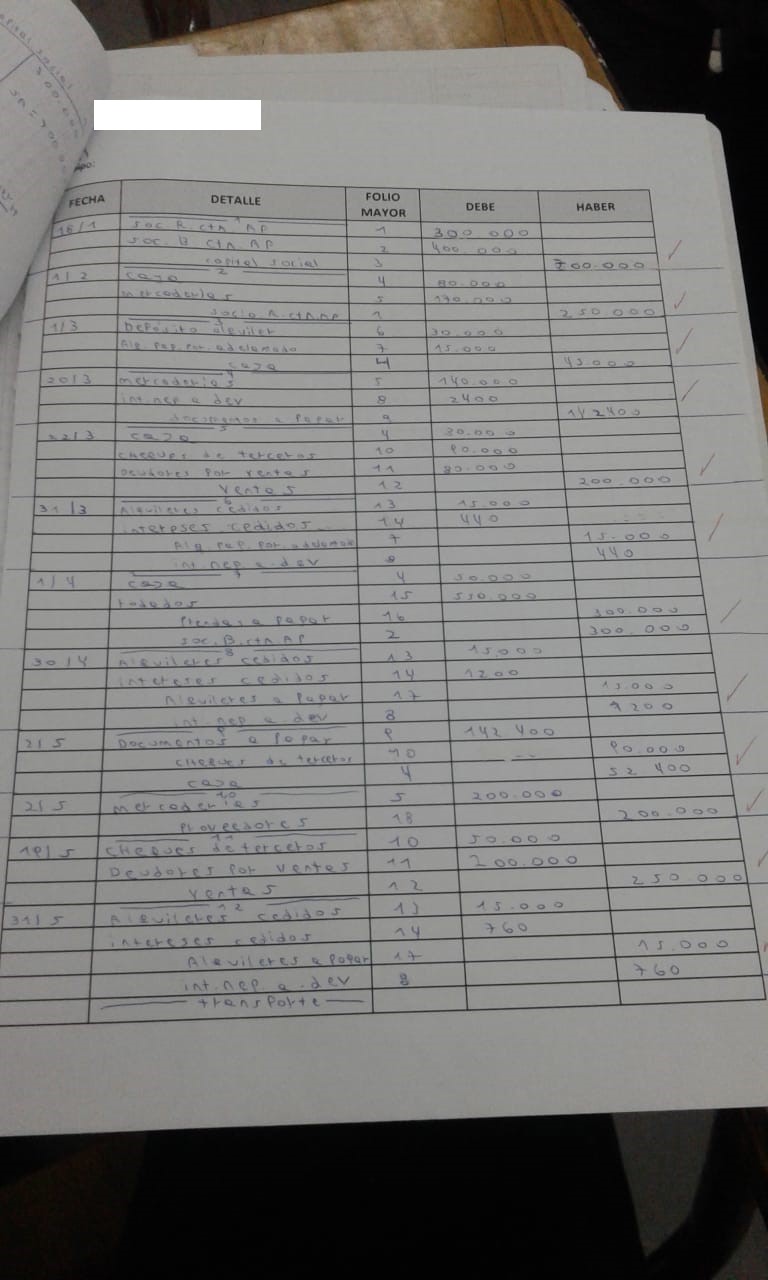 FECHA DETALLE FOLIO MAYOR DEBE HABER
1
16/1 Soc. R. cta. AP 1 300.000
Soc. B. cta. AP 2 400.000
capital social 3 700.000
2
1/2 caja 4 80.000
mercaderias 5 170.000
socio R. cta. AP 1 250.000
1/3 Depósito alquiler 6 30.000
Alq. pag. por. adelantado 7 15.000
caja 4 45.000
4
20/3 mercaderias 5 140.000
int. neg a dev 8 2400
documentos a pagar 9 142400
5
22/3 caja 4 30.000
cheques de terceros 10 90.000
Deudores por ventas 11 80.000
ventas 12 200.000
6
31/3 Alquileres cedidos 13 15.000
intereses cedidos 14 440
Alq. pag. por. adelantado 7 15.000
int. neg a. dev 8 440
7
1/4 caja 4 50.000
rodados 15 550.000
Prendas a pagar 16 300.000
soc. B. cta. AP 2 300.000
8
30/4 Alquileres cedidos 13 15.000
intereses cedidos 14 1200
Alquileres a pagar 17 15.000
int. neg a. dev 8 1200
9
2/5 Documentos a pagar 9 142.400
cheques de terceros 10 90.000
caja 4 52 400
10
2/5 mercaderias 5 200.000
Proveedores 18 200.000
11
19/5 cheques de terceros 10 50.000
Deudores por ventas 11 200.000
ventas 12 250.000
12
31/5 Alquileres cedidos 13 15.000
intereses cedidos 14 760
Alquileres a pagar 17 15.000
int. neg a. dev 8 760
transporte